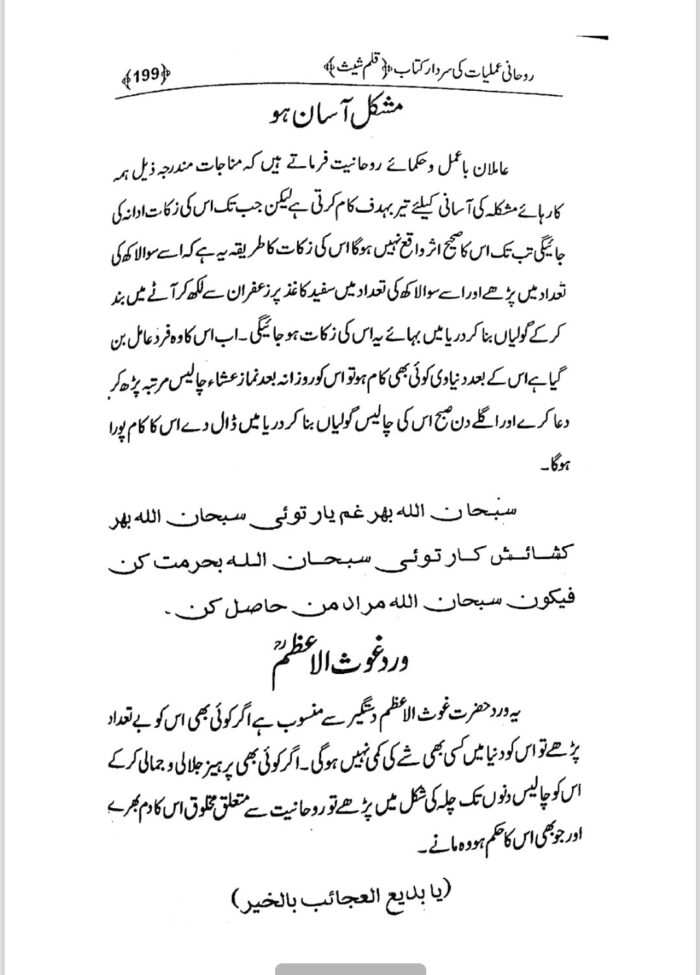 روحانی عملیات کی سردار کتاب ﴿قلم شیث﴾ ﴿199﴾
مشکل آسان ہو
عاملان باعمل و حکمائے روحانیت فرماتے ہیں کہ مناجات مندرجہ ذیل ہمہ
کارہائے مشکلہ کی آسانی کیلئے تیر بہدف کام کرتی ہے لیکن جب تک اس کی زکات ادا نہ کی
جائیگی تب تک اس کا صحیح اثر واقع نہیں ہوگا اس کی زکات کا طریقہ یہ ہے کہ اسے سوا لاکھ کی
تعداد میں پڑھے اور اسے سوا لاکھ کی تعداد میں سفید کاغذ پر زعفران سے لکھ کر آٹے میں بند
کر کے گولیاں بنا کر دریا میں بہائے یہ اس کی زکات ہو جائیگی۔ اب اس کا وہ فرد عامل بن
گیا ہے اس کے بعد دنیاوی کوئی بھی کام ہو تو اس کو روزانہ بعد نماز عشاء چالیس مرتبہ پڑھ کر
دعا کرے اور اگلے دن صبح اس کی چالیس گولیاں بنا کر دریا میں ڈال دے اس کا کام پورا
ہوگا۔
سبحان الله بهر غم یار توئی سبحان الله بهر
کشائش کار توئی سبحان الله بحرمت کن
فیکون سبحان الله مراد من حاصل کن۔
ورد غوث الاعظمؒ
یہ ورد حضرت غوث الاعظم دستگیر سے منسوب ہے اگر کوئی بھی اس کو بے تعداد
پڑھے تو اس کو دنیا میں کسی بھی شے کی کمی نہیں ہوگی۔ اگر کوئی بھی پرہیز جلالی و جمالی کر کے
اس کو چالیس دنوں تک چلہ کی شکل میں پڑھے تو روحانیت سے متعلق مخلوق اس کا دم بھرے
اور جو بھی اس کا حکم ہو وہ مانے۔
(یا بدیع العجائب بالخیر)